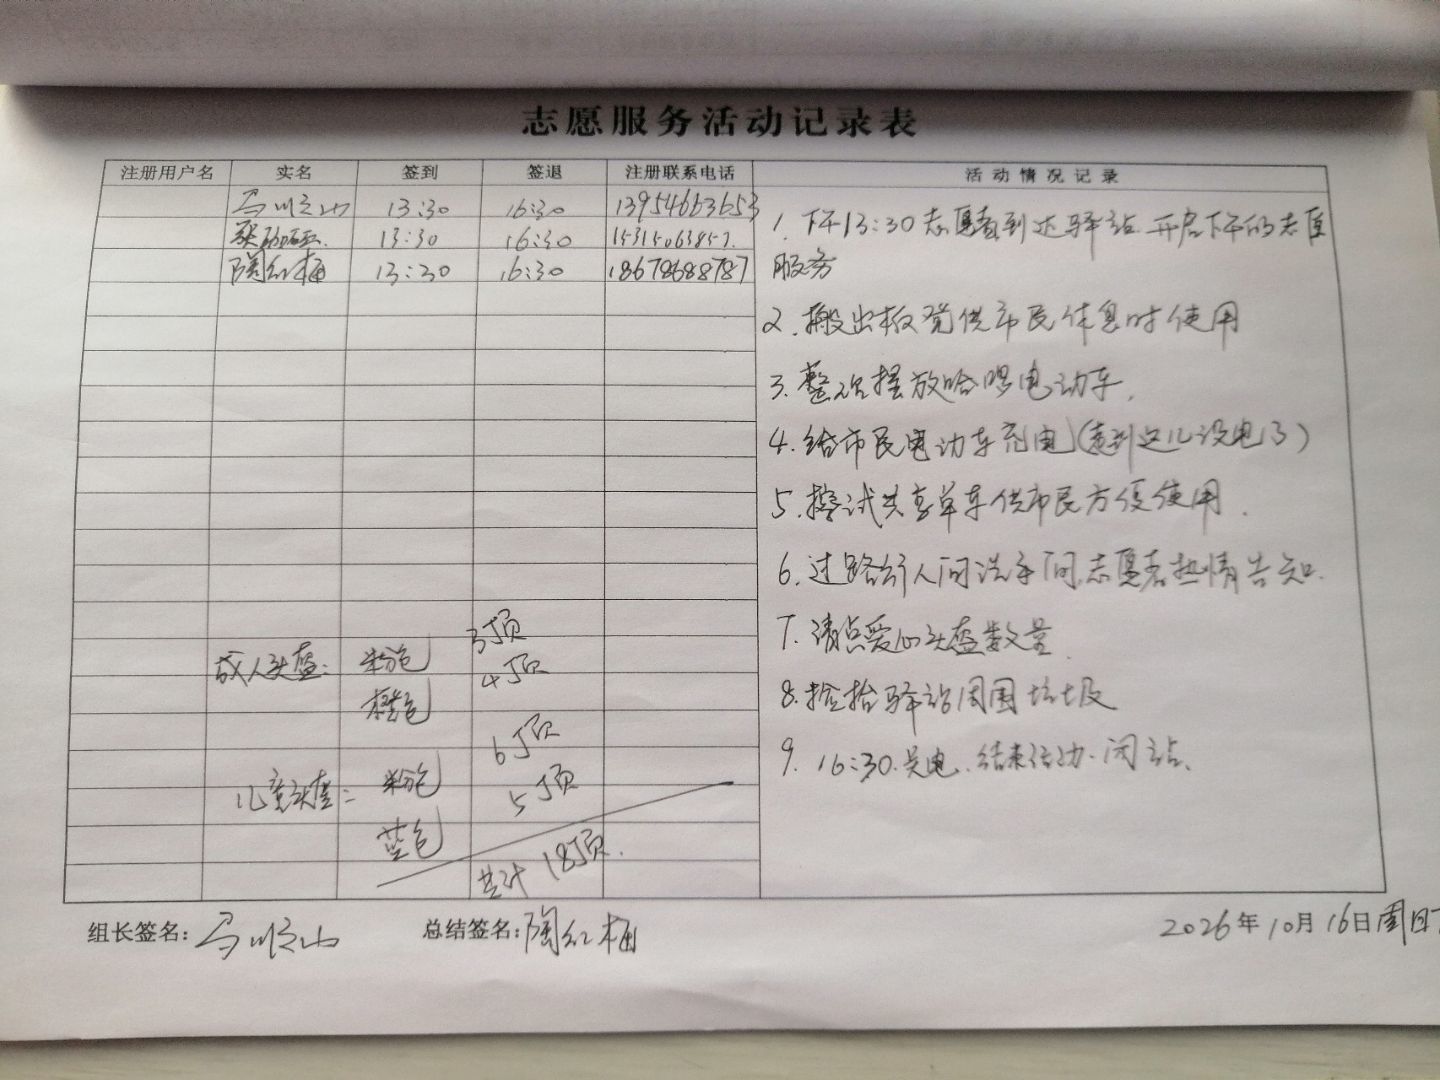 志愿服务活动记录表
注册用户名 实名 签到 签退 注册联系电话 活动情况记录
马顺山 13:30 16:30 13954663653
13:30 16:30 15315063857.
陶红梅 13:30 16:30 18678688787
1. 下午13:30志愿者到达驿站.开启下午的志愿
服务
2.搬出板凳供市民休息时使用
3.整次摆放哈啰电动车.
4.给市民电动车充电(走到这儿没电了)
5.擦试共享单车供市民方便使用.
6.过路行人问洗手间,志愿者热情告知.
7.清点爱心头盔数量.
8.捡拾驿站周围垃圾
9. 16:30.关电.结束活动.闭站.
成人头盔: 粉色 3顶
橙色 4顶
儿童头盔: 粉色 6顶
蓝色 5顶
共计 18顶.
组长签名: 马顺山 总结签名: 陶红梅 2026年10月16日周日下